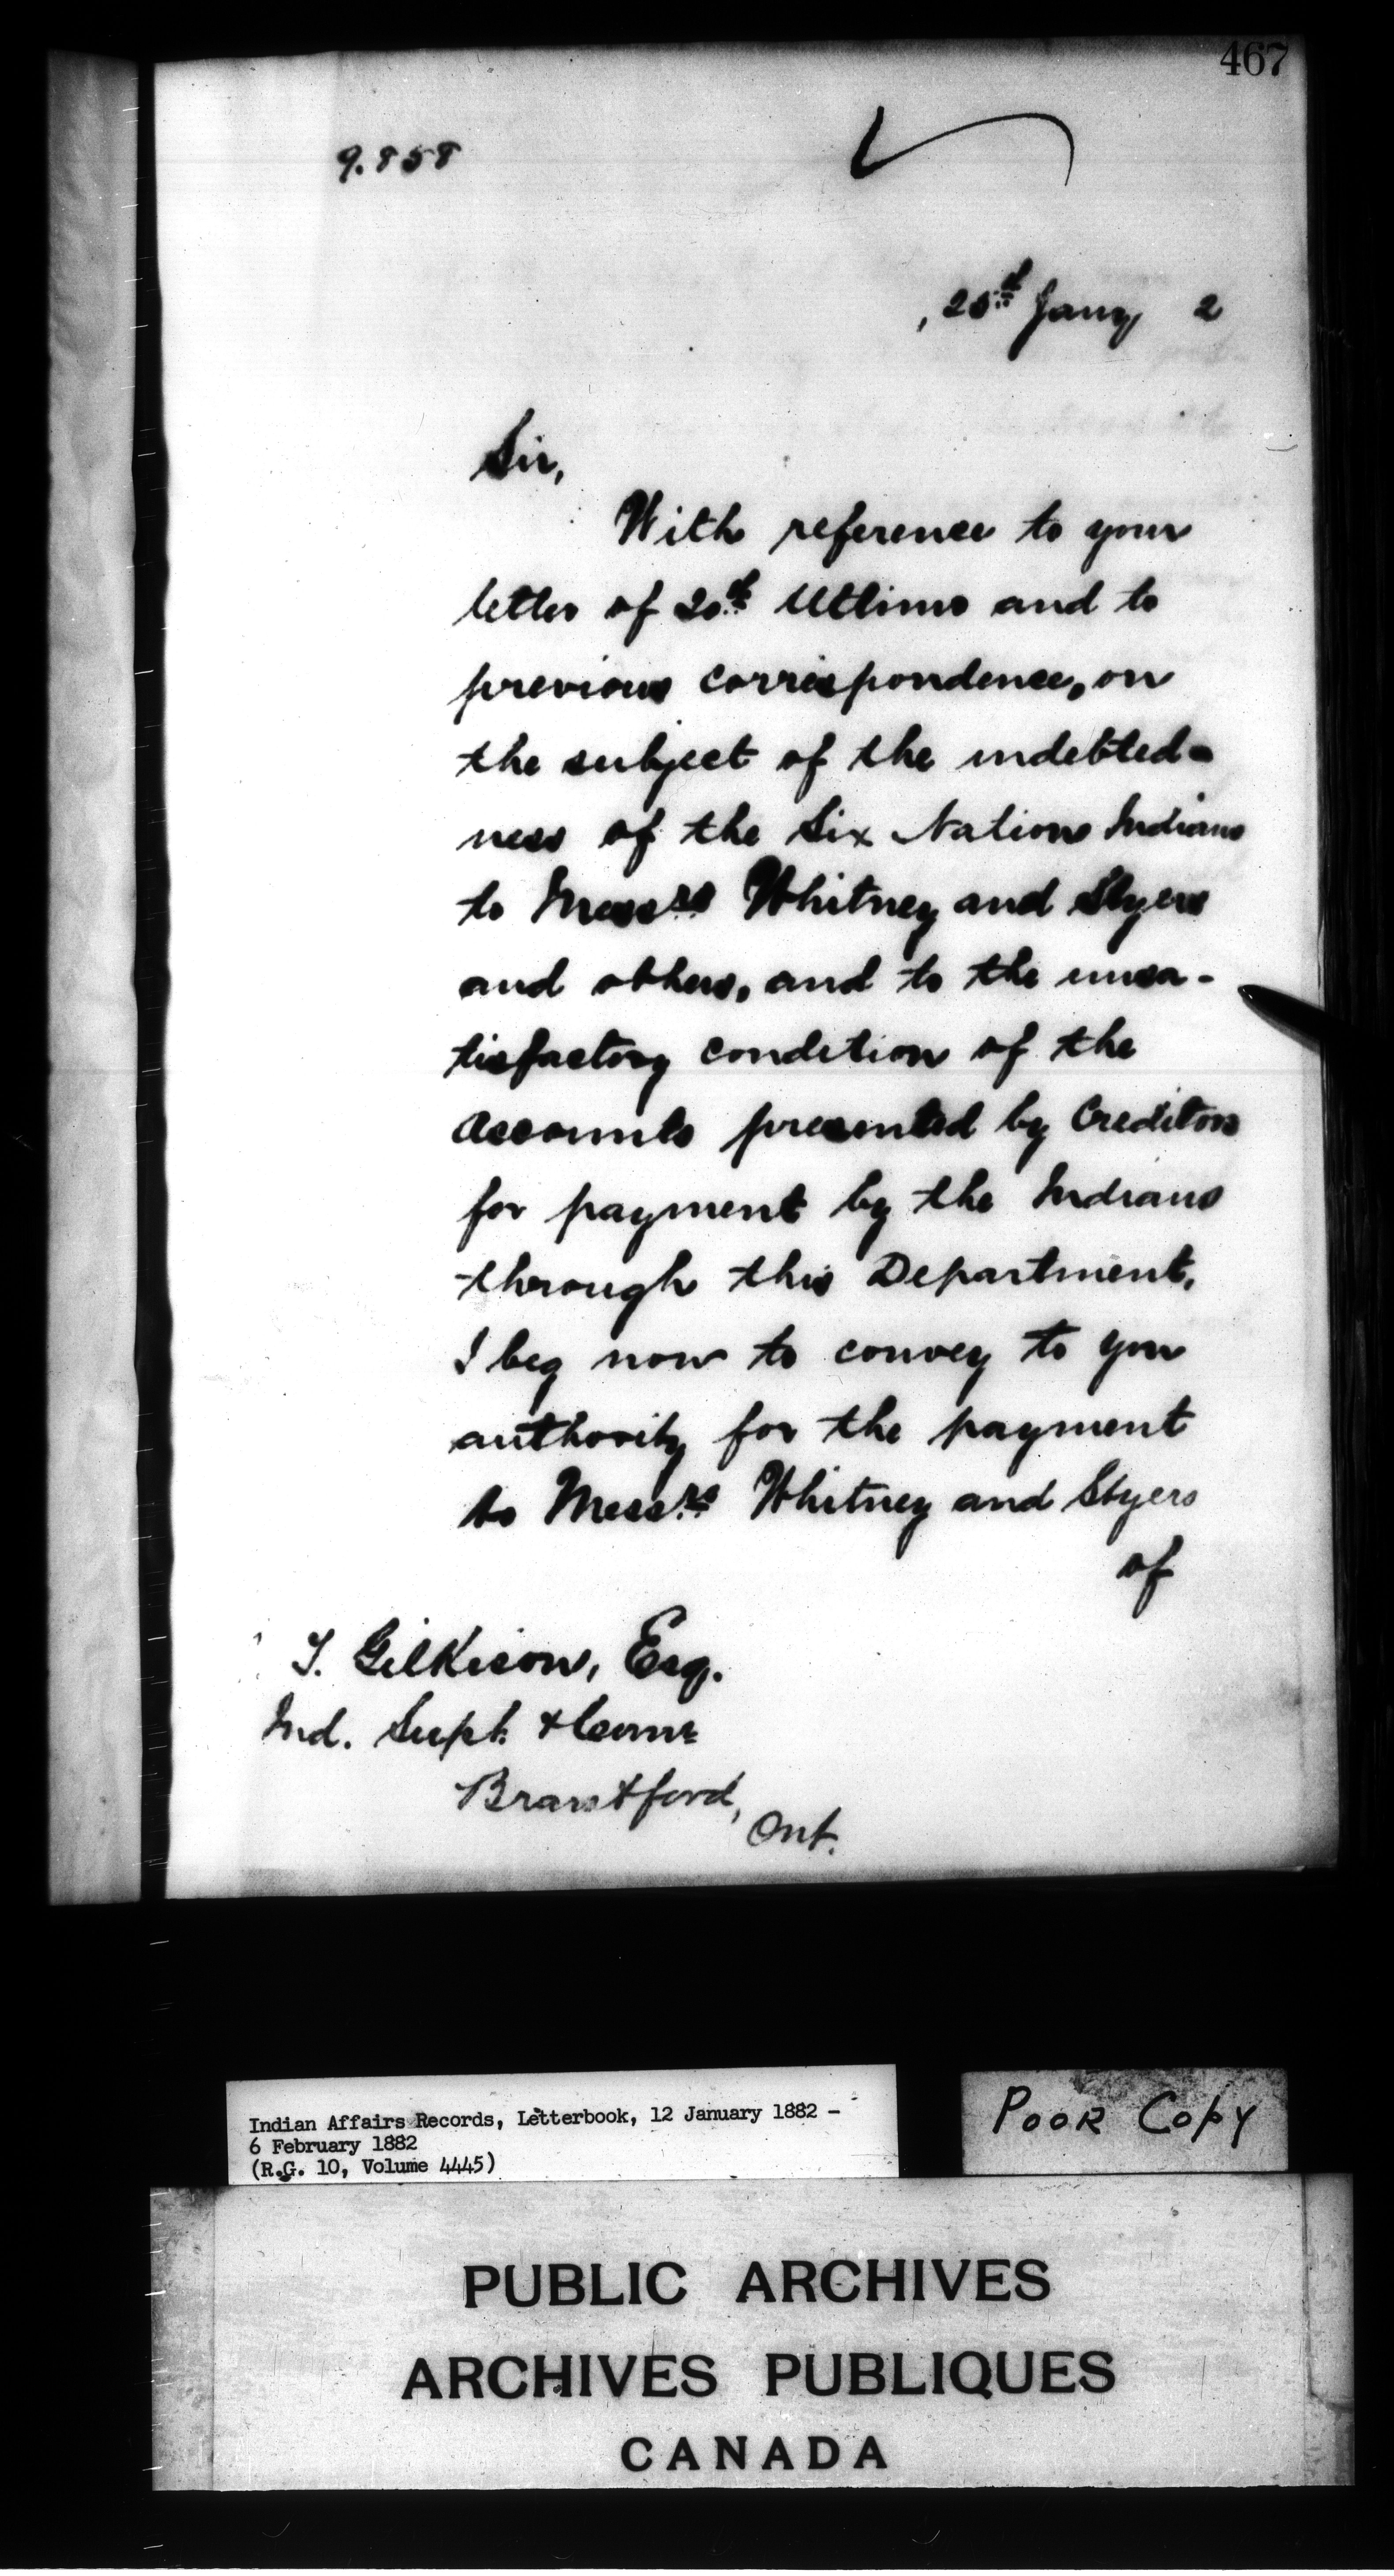 467
9.858
, 25th Jany 2
Sir,
With reference to your
letter of 20th Ultimo and to
previous correspondence, on
the subject of the indebted-
ness of the Six Nations Indians
to Messrs Whitney and Styers
and others, and to the unsa-
tisfactory condition of the
Accounts presented by Creditors
for payment by the Indians
through this Department,
I beg now to convey to you
authority for the payment
to Messrs Whitney and Styers
of
J. Gilkison, Esq.
Ind. Supt. & Comr
Brantford,
Ont.
Indian Affairs Records, Letterbook, 12 January 1882 -
6 February 1882
(R.G. 10, Volume 4445)
POOR COPY
PUBLIC ARCHIVES
ARCHIVES PUBLIQUES
CANADA